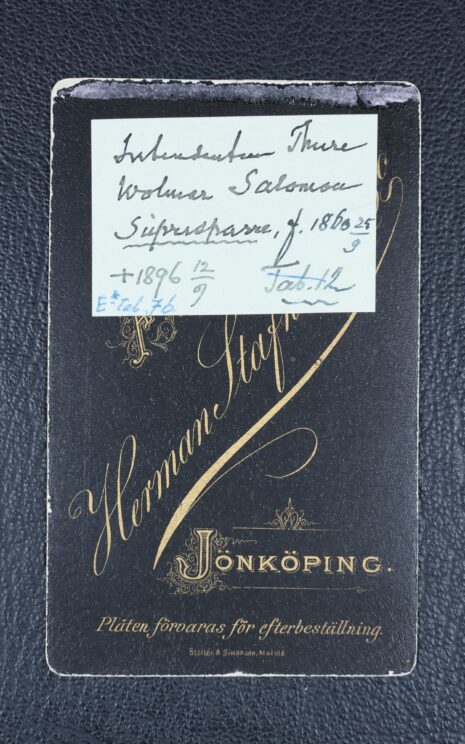 Intendenten Thure
Wolmar Salomon
Silfversparre, f. 1860 25/9
+1896 12/9 Tab. 12
E* Tab. 76.
Herman
JÖNKÖPING.
Plåten förvaras för efterbeställning.
Stolten & Simonsen, Malmö